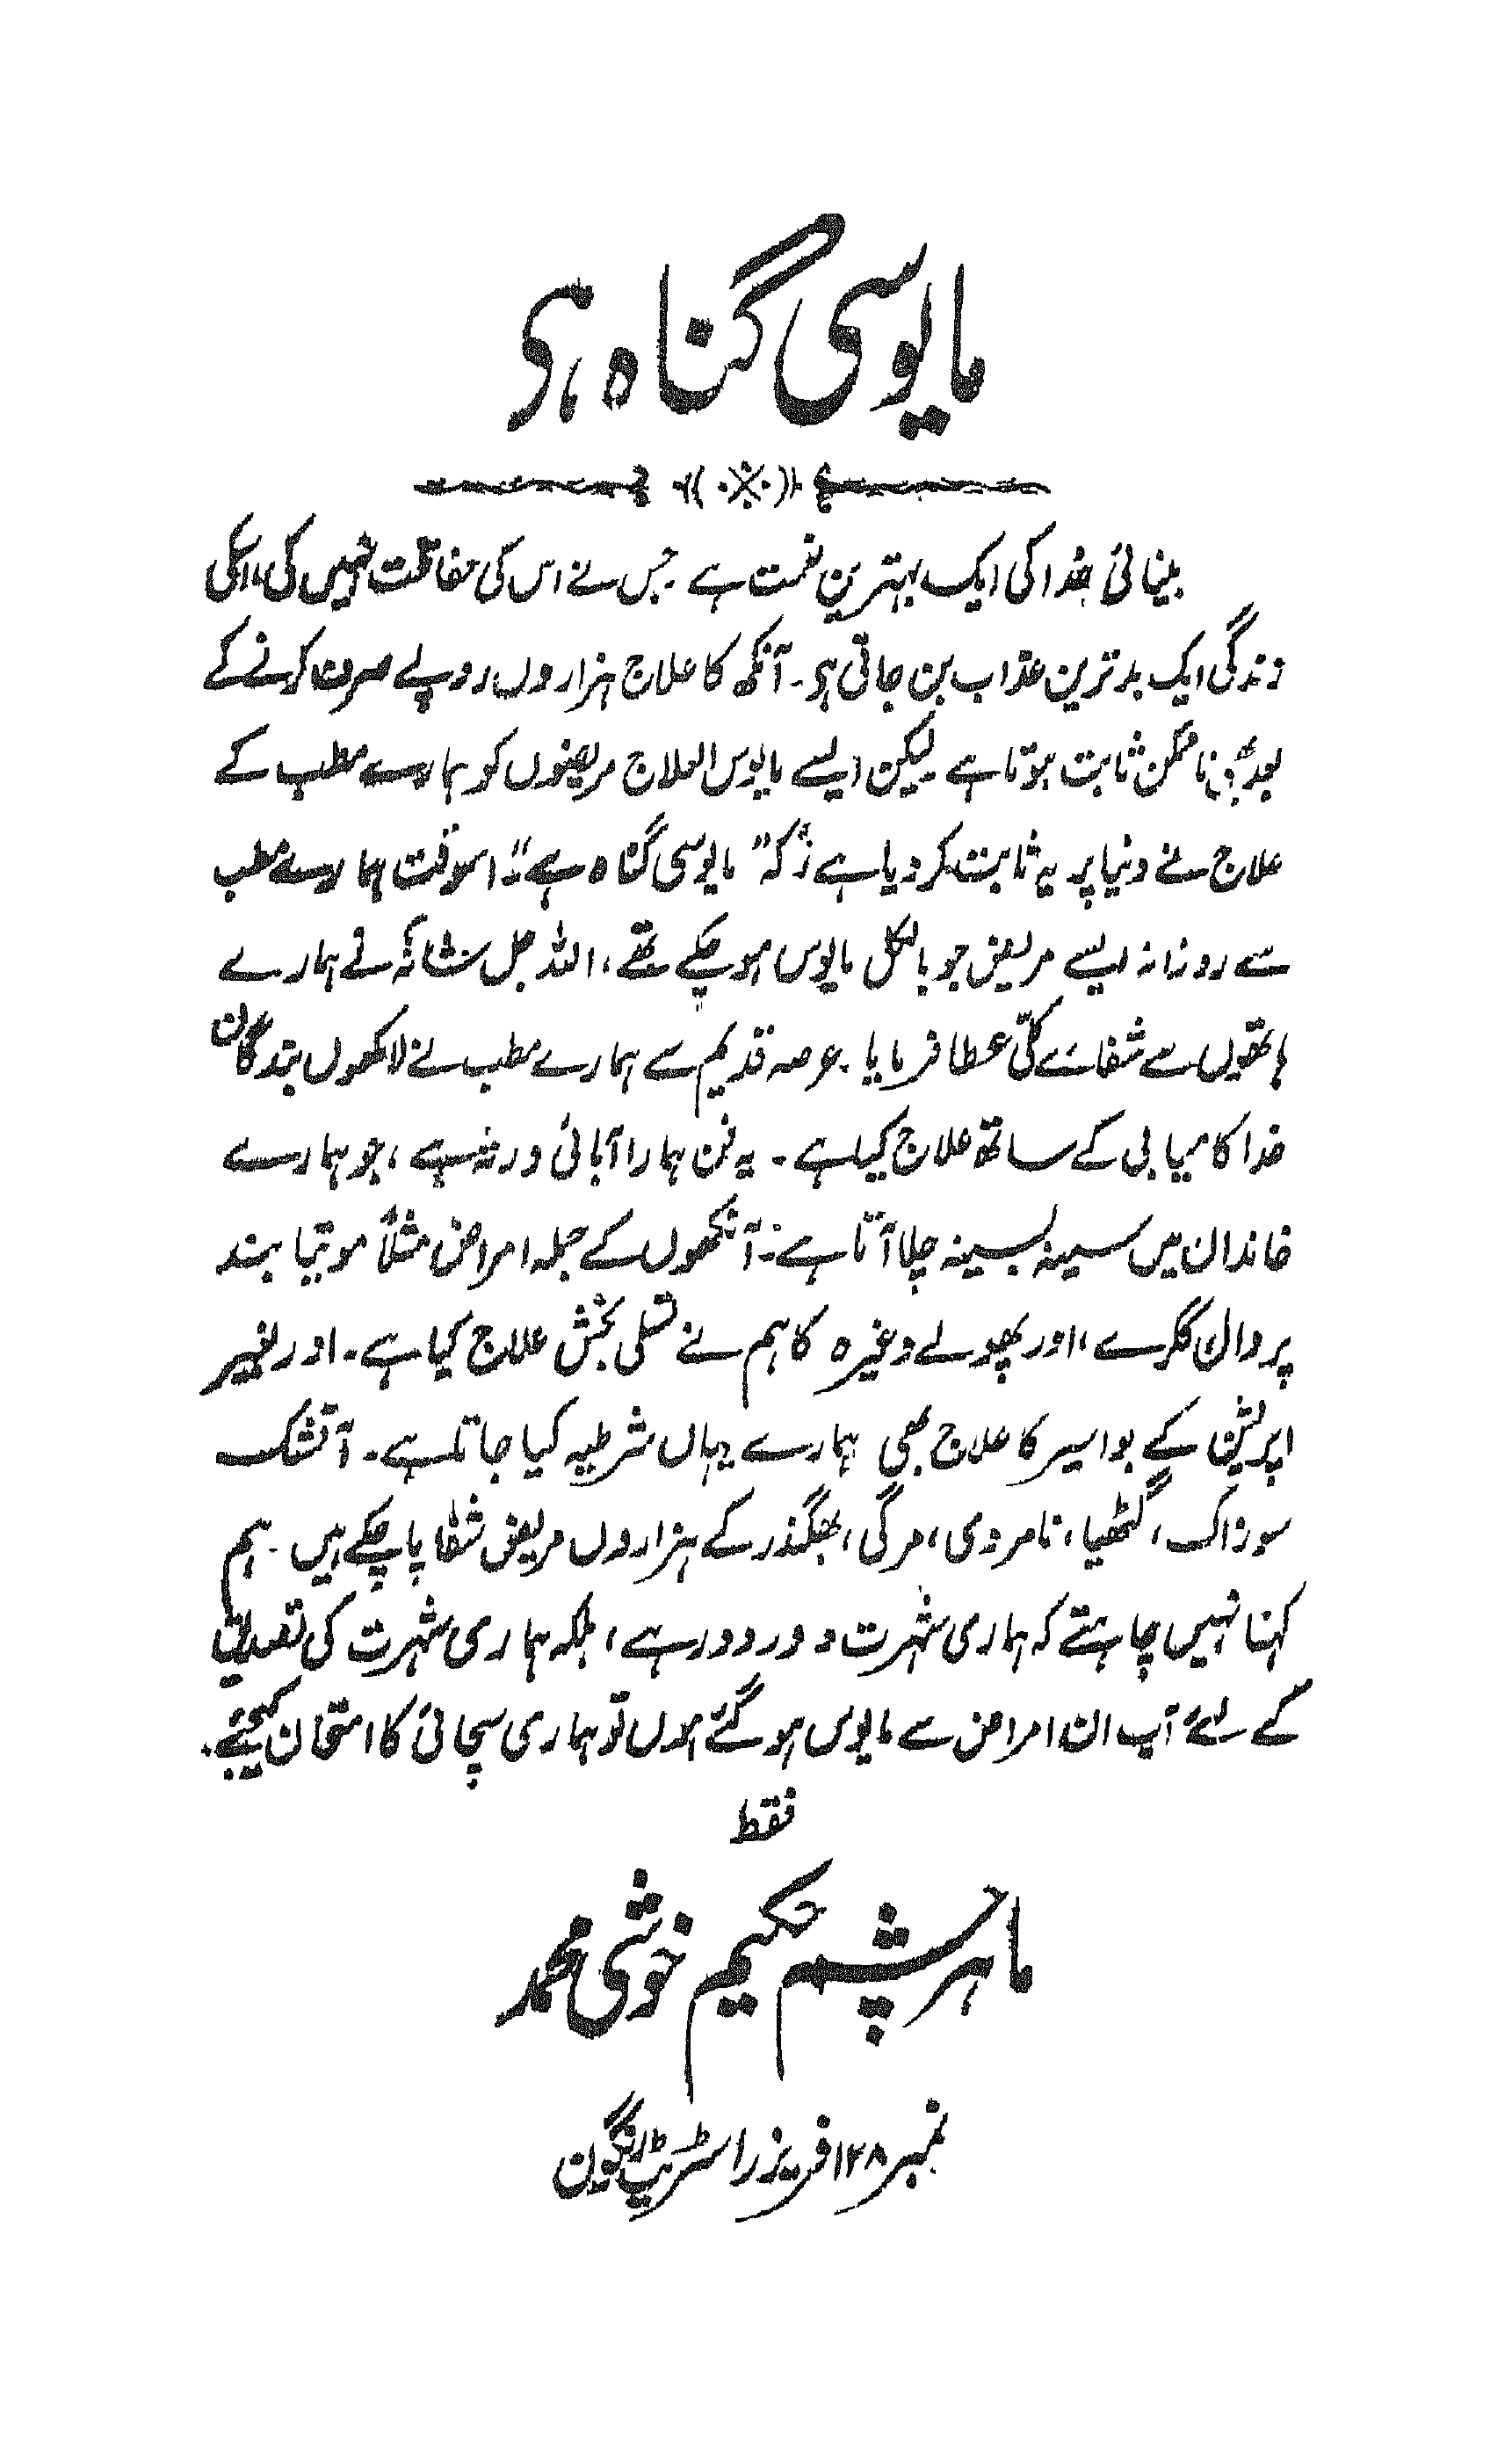 مایوسی گناہ ہی
بینائی خدا کی ایک بہترین نعمت ہے۔ جس نے اس کی حفاظت نہیں کی، اسکی
زندگی ایک بدترین عذاب بن جاتی ہی۔ آنکھ کا علاج ہزاروں روپے صرف کرنے کے
بعد بھی ناممکن ثابت ہوتا ہے۔ لیکن ایسے مایوس العلاج مریضوں کو ہمارے مطب کے
علاج نے دنیا پر یہ ثابت کر دیا ہے کہ "مایوسی گناہ ہے"۔ اسوقت ہمارے مطب
سے روزانہ ایسے مریض جو بالکل مایوس ہو چکے تھے، اللہ جل شانہٗ نے ہمارے
ہاتھوں سے شفائے کلّی عطا فرمایا۔ عرصہ قدیم سے ہمارے مطب نے لاکھوں بندگان
خدا کا میابی کے ساتھ علاج کیا ہے۔ یہ فن ہمارا آبائی ورثہ ہے، جو ہمارے
خاندان میں سینہ بسینہ چلا آتا ہے۔ آنکھوں کے جملہ امراض مثلاً موتیا بند
پروال ککرے، اور پھولے وغیرہ کا ہم نے تسلی بخش علاج کیا ہے۔ اور بغیر
اپریشن کے بواسیر کا علاج بھی ہمارے یہاں شرطیہ کیا جاتا ہے۔ آتشک
سوزاک، گٹھیا، نامردی، مرگی، بھگندر کے ہزاروں مریض شفا پا چکے ہیں۔ ہم
کہنا نہیں چاہتے کہ ہماری شہرت دور دور ہے، بلکہ ہماری شہرت کی تصدیق
کے لئے آپ ان امراض سے مایوس ہو گئے ہوں تو ہماری سچائی کا امتحان کیجئے۔
فقط
ماہر چشم حکیم خوشی محمد
نمبر ۱۲۸ فریزر اسٹریٹ رنگون